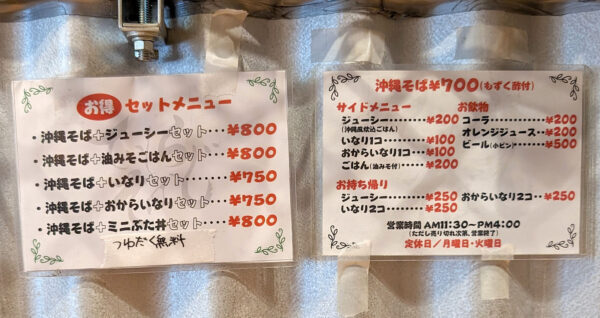 お得 セットメニュー
・沖縄そば+ジューシーセット・・・¥800
・沖縄そば+油みそごはんセット・・・¥800
・沖縄そば+いなりセット・・・・¥750
・沖縄そば+おからいなりセット・・¥750
・沖縄そば+ミニぶた丼セット・・・¥800
つゆだく無料
沖縄そば¥700(もずく酢付)
サイドメニュー
ジューシー・・・・・・・・¥200
(沖縄風炊込ごはん)
いなり1コ・・・・・・・・¥100
おからいなり1コ・・・¥100
ごはん(油みそ付)・・・・¥200
お飲物
コーラ・・・・・・・・・・¥200
オレンジジュース・・¥200
ビール(小ビン)・・・・¥500
お持ち帰り
ジューシー・・・・・・・・¥250
いなり2コ・・・・・・・・¥250
おからいなり2コ・・¥250
営業時間 AM11:30~PM4:00
(ただし売り切れ次第、営業終了)
定休日/月曜日・火曜日